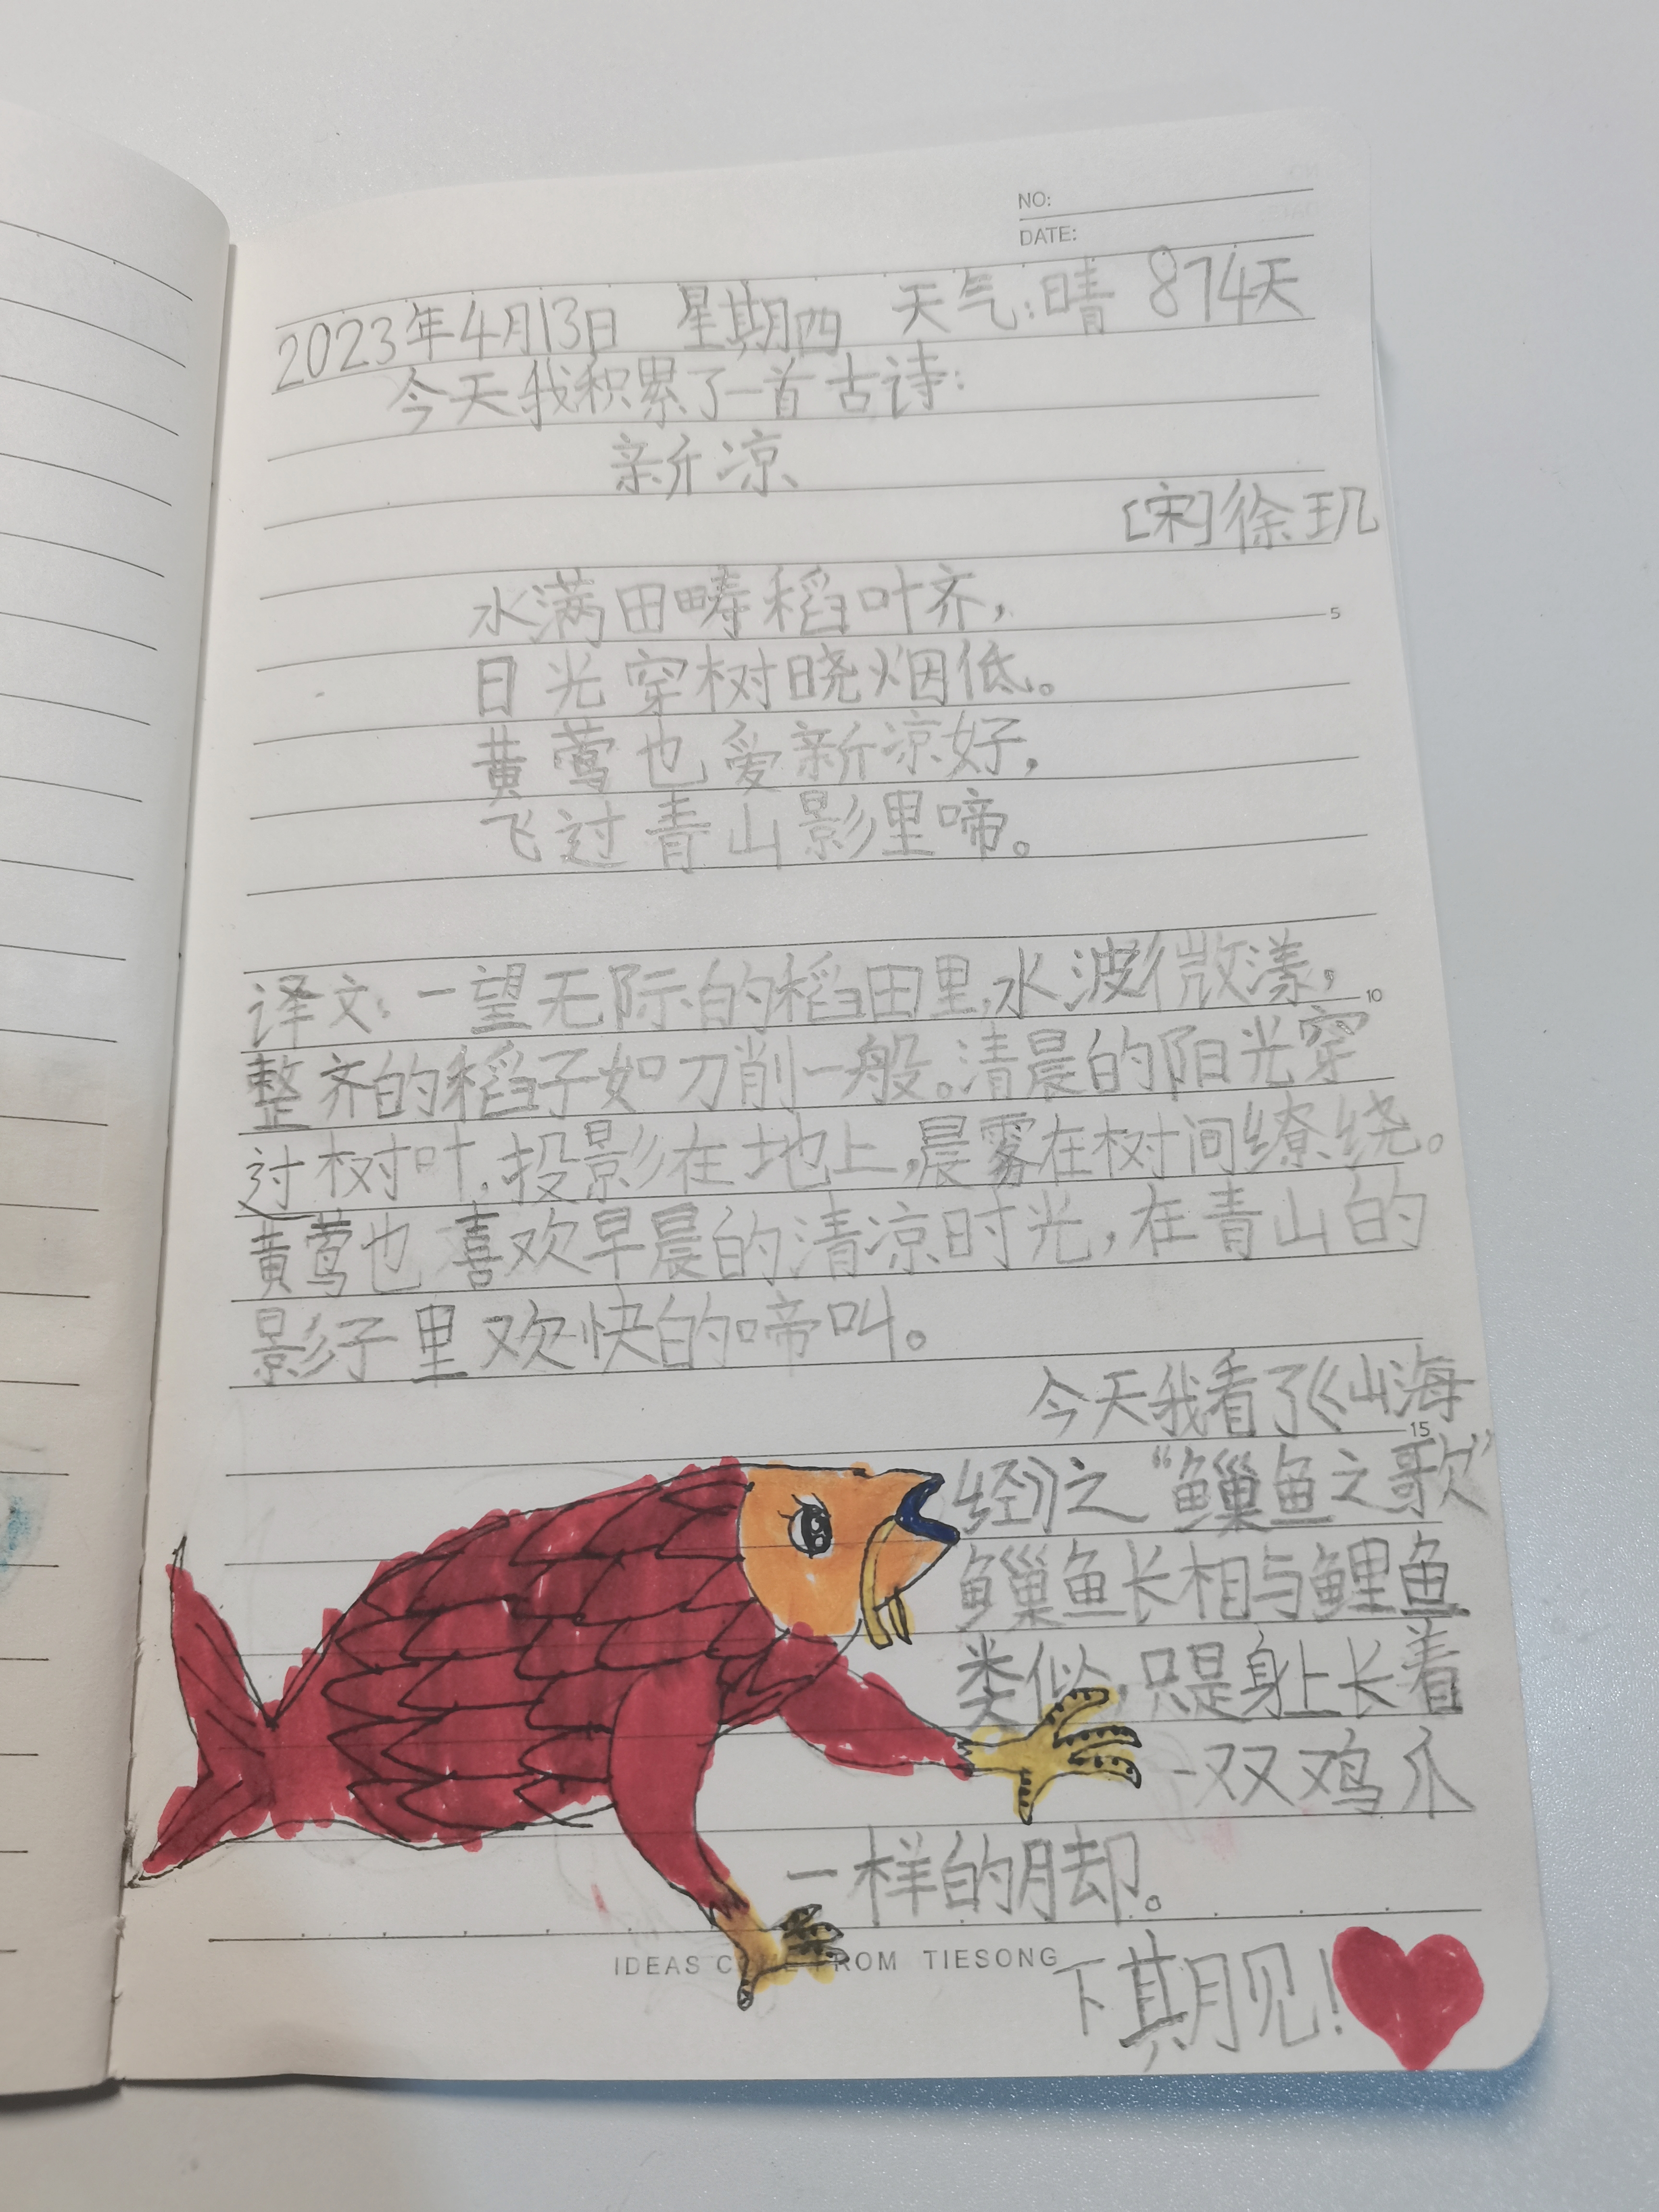 NO:
DATE:
2023年4月13日 星期四 天气:晴 874天
今天我积累了一首古诗:
新凉
[宋]徐玑
水满田畴稻叶齐,
日光穿树晓烟低。
黄莺也爱新凉好,
飞过青山影里啼。
5
译文:一望无际的稻田里,水波微漾,
10
整齐的稻子如刀削一般。清晨的阳光穿
过树叶,投影在地上,晨雾在树间缭绕。
黄莺也喜欢早晨的清凉时光,在青山的
影子里欢快的啼叫。
今天我看了《山海
15
经》之“鱲鱼之歌”
鱲鱼长相与鲤鱼
类似,只是身上长着
一双鸡爪
一样的脚。
IDEAS FROM TIESONG
下期见!